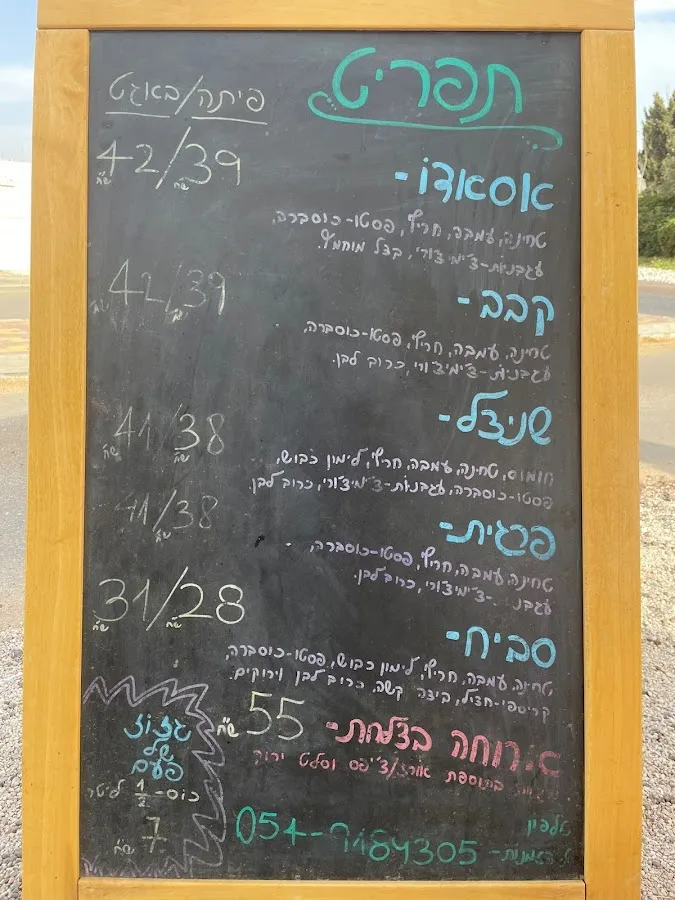 תפריט
פיתה/באגט
אסאדו-
42/39
שח שח
טחינה, עמבה, חריף, פסטו-כוסברה,
עגבניות-צ'ימיצ'ורי, בצל מוחמץ.
קבב-
42/39
טחינה, עמבה, חריף, פסטו-כוסברה,
עגבניות-צ'ימיצ'ורי, כרוב לבן.
שניצל-
41/38
שח שח
חומוס, טחינה, עמבה, חריף, לימון כבוש,
פסטו-כוסברה, עגבניות-צ'ימיצ'ורי, כרוב לבן.
פרגית-
41/38
שח
טחינה, עמבה, חריף, פסטו-כוסברה,
-צ'ימיצ'ורי, כרוב לבן.
סביח-
31/28
שח שח
טחינה, עמבה, חריף, לימון כבוש, פסטו-כוסברה,
קריספי-חציל, ביצה קשה, כרוב לבן וירוקים.
ארוחה בצלחת- 55 ש"ח
בתוספת אורז/צ'יפס וסלט ירוק
גזוז
של
פעם
כוס- 1/2 ליטר
7
ש"ח
טלפון
054-9484305